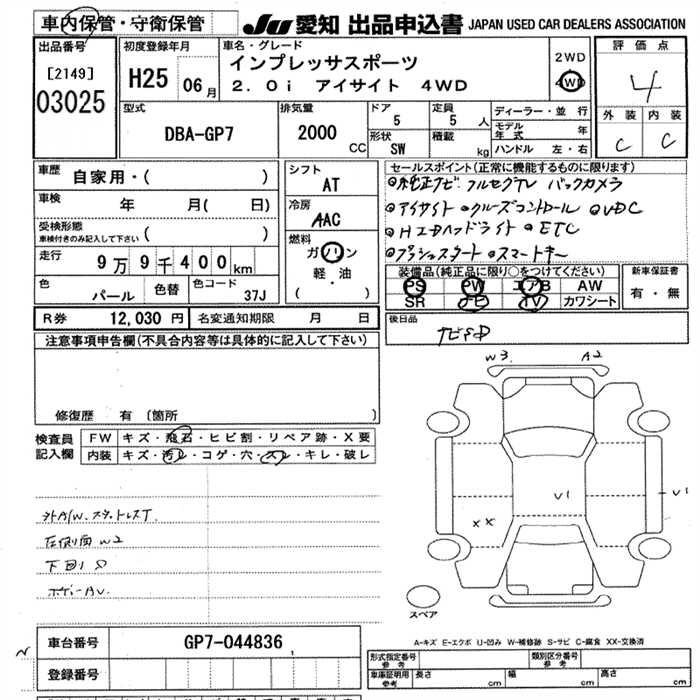 車内保管・守衛保管 JU 愛知 出品申込書 JAPAN USED CAR DEALERS ASSOCIATION
出品番号 初度登録年月 車名・グレード 評価点
[2149] H25 06月 インプレッサスポーツ 2WD
03025 2.0i アイサイト 4WD 4WD 4
型式 排気量 ドア 定員 ディーラー・並行 外装 内装
DBA-GP7 2000 CC 5 5人 モデル年式 年 C C
形状 積載
SW kg ハンドル 左・右
車歴 自家用・( ) シフト セールスポイント(正常に機能するものに限ります)
AT ◎純正ナビ フルセグTV バックカメラ
車検 年 月( 日) 冷房 ◎アイサイト ◎クルーズコントロール ◎VDC
受検形態 AAC ◎HIDヘッドライト ◎ETC
車検付きのみ記入して下さい ( ) 燃料 ◎プッシュスタート ◎スマートキー
走行 9万9千400km ガソリン 装備品(純正品に限り○をつけてください) 新車保証書
色 色替 色コード 軽・油 PS PW エアB AW 有・無
パール 37J ( ) SR ナビ TV カワシート
R券 12,030円 名変通知期限 月 日 後日品
注意事項申告欄(不具合内容等は具体的に記入して下さい) ナビSD
W3 A2
修復歴 有 〔箇所 〕
検査員 FW キズ・飛石・ヒビ割・リペア跡・X要
記入欄 内装 キズ・汚レ・コゲ・穴・スレ・キレ・破レ
V1 V1
XX
社外A/W.スタッドレスT.
左側面 W2
下回り S
ボデーAV.
スペア
車台番号 GP7-044836
A-キズ E-エクボ U-凹み W-補修跡 S-サビ C-腐食 XX-交換済
登録番号 形式指定番号 参考 類別区分番号 参考
車庫証明用 参考 長さ cm 幅 cm 高さ cm